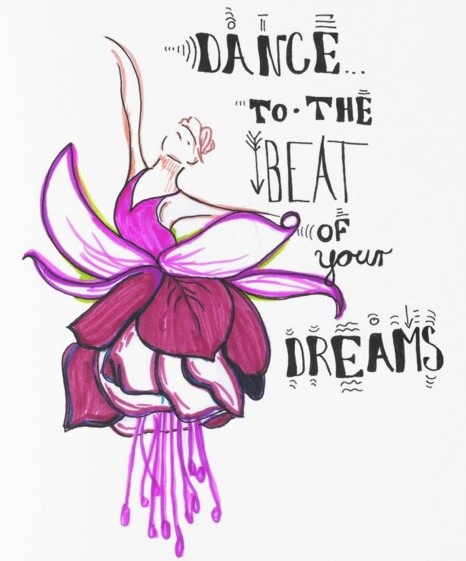 DANCE...
TO • THE
BEAT
OF
your
DREAMS